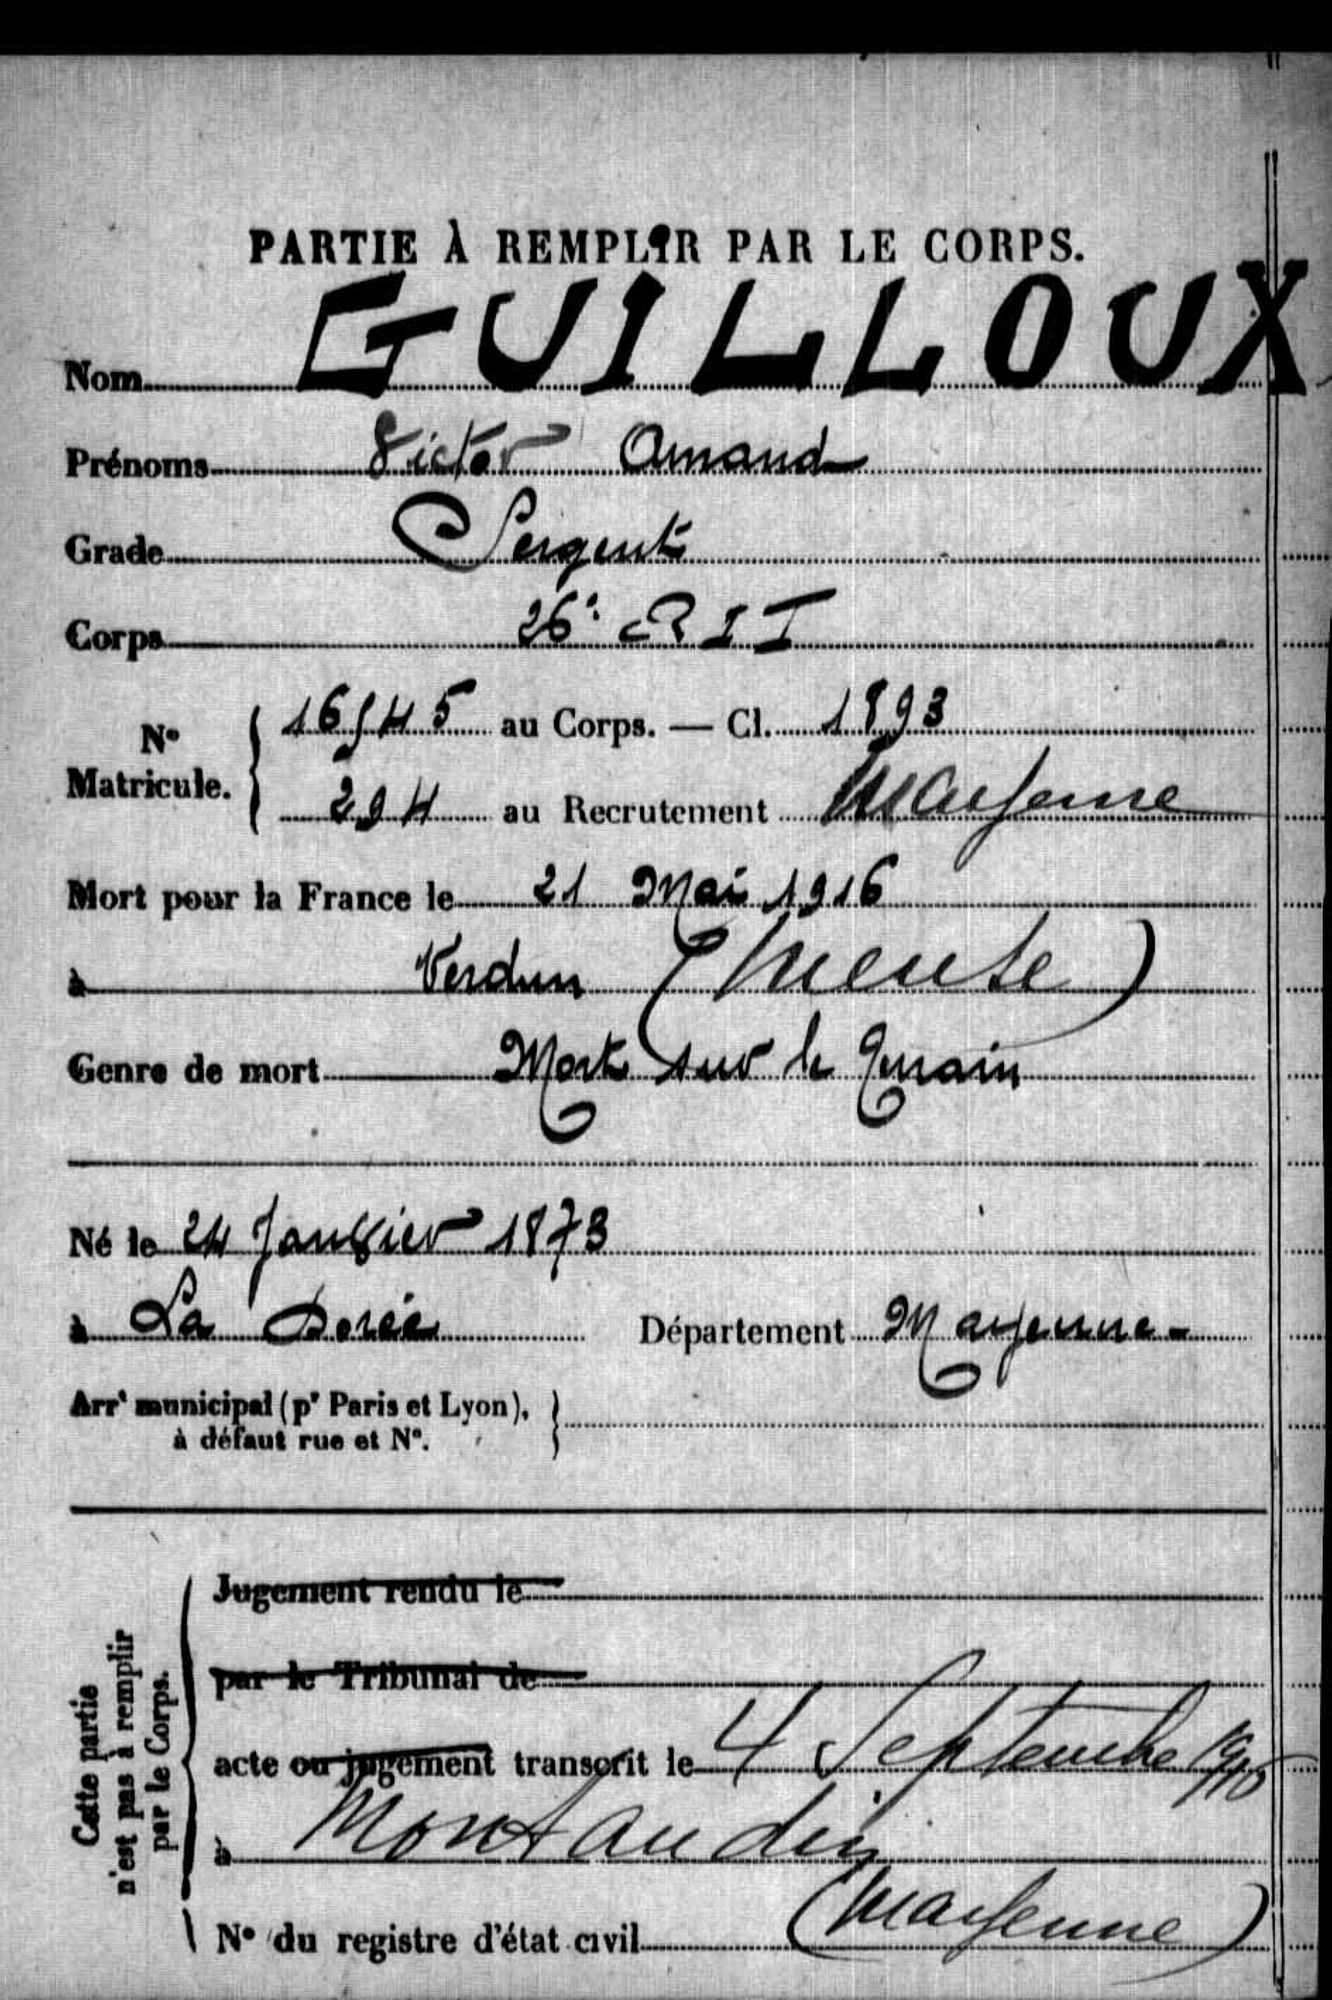 PARTIE À REMPLIR PAR LE CORPS.
Nom GUILLOUX
Prénoms Victor Amand
Grade Sergent
Corps 26e RIT
No Matricule. { 16545 au Corps. — Cl. 1893
294 au Recrutement Mayenne
Mort pour la France le 21 Mai 1916
à Verdun (Meuse)
Genre de mort Mort sur le terrain
Né le 24 Janvier 1873
à La Dorée Département Mayenne-
Arrt municipal (pr Paris et Lyon),
à défaut rue et No.
Cette partie
n'est pas à remplir
par le Corps.
Jugement rendu le
par le Tribunal de
acte ou jugement transcrit le 4 Septembre 1916
à Montaudin
(Mayenne)
No du registre d'état civil